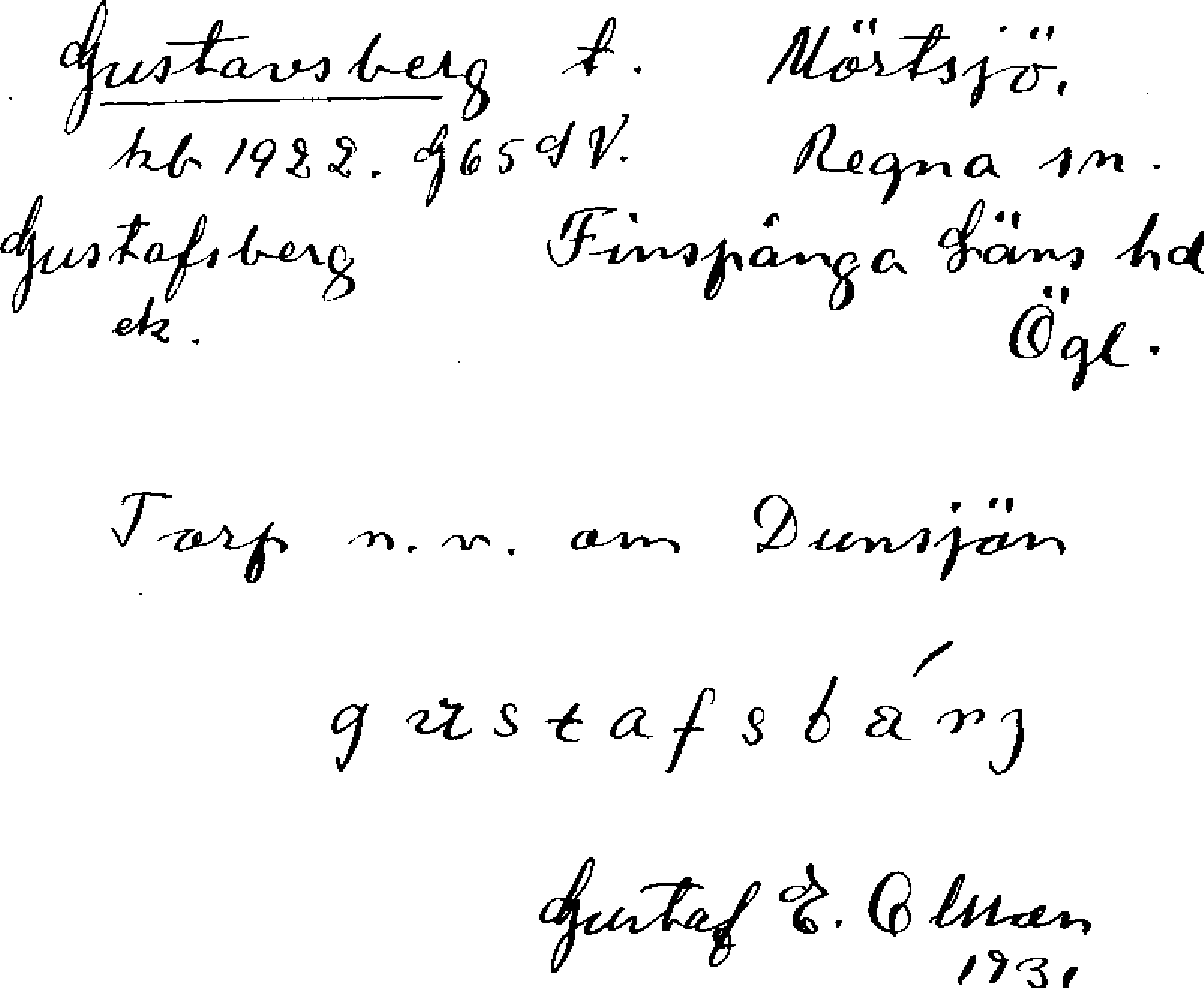 Gustavsberg t. Mörtsjö,
kb 1922. G65dV. Regna sn.
Gustafsberg Finspånga Läns hd
ek. Ögl.
Torp n.v. om Dunsjön
gustafsbärj
Gustaf E. Olsson
1931